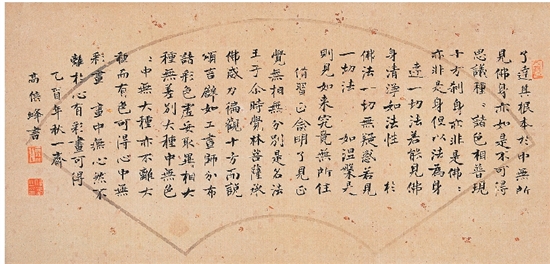 了達其根本於中無所
見佛身亦如是不可得
思議種〻諸色相普現
十方剎身亦非是佛〻
亦非是身但以法為身
達一切法若能見佛
身清淨如法性 於
佛法一切無疑惑若見
一切法 如涅槃是
則見如來究竟無所住
修習正念明了見正
覺無相無分別是名法
王子尒時覺林菩薩承
佛威力徧觀十方而說
頌言譬如工畫師分布
諸彩色虛妄取異相大
種無差別大種中無色
〻中無大種亦不離大
種而有色可得心中無
彩畫 畫中無心然不
離於心有彩畫可得
乙酉年秋一齋
高 書